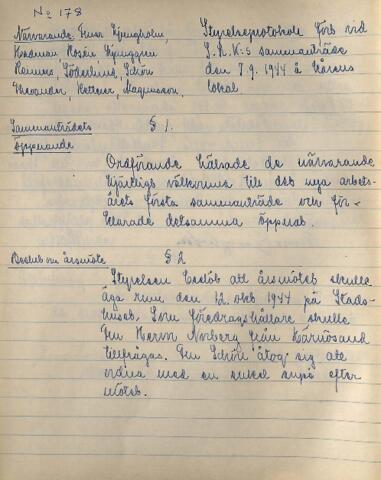 No 178
Närvarande: Fruar Ljungholm,
Hedman Rosén, Ljunggren
Söderlund, Schön
Theander, Hellner, Magnusson,
Styrelseprotokoll förts vid
S.R.K:s sammanträde
den 7.9. 1944 å Kårens
lokal
Sammanträdets
öppnande
§ 1.
Ordförande hälsade de närvarande
hjärtligt välkomna till det nya arbets-
årets första sammanträde och för-
klarade detsamma öppnat.
Beslut om årsmöte
§ 2
Styrelsen beslöt att årsmötet skulle
äga rum den 12 okt 1944 på Stads-
huset. Som föredragshållare skulle
Fru Norberg från Härnösand
tillfrågas. Fru Schön åtog sig att
ordna med en enkel supé efter
mötet.